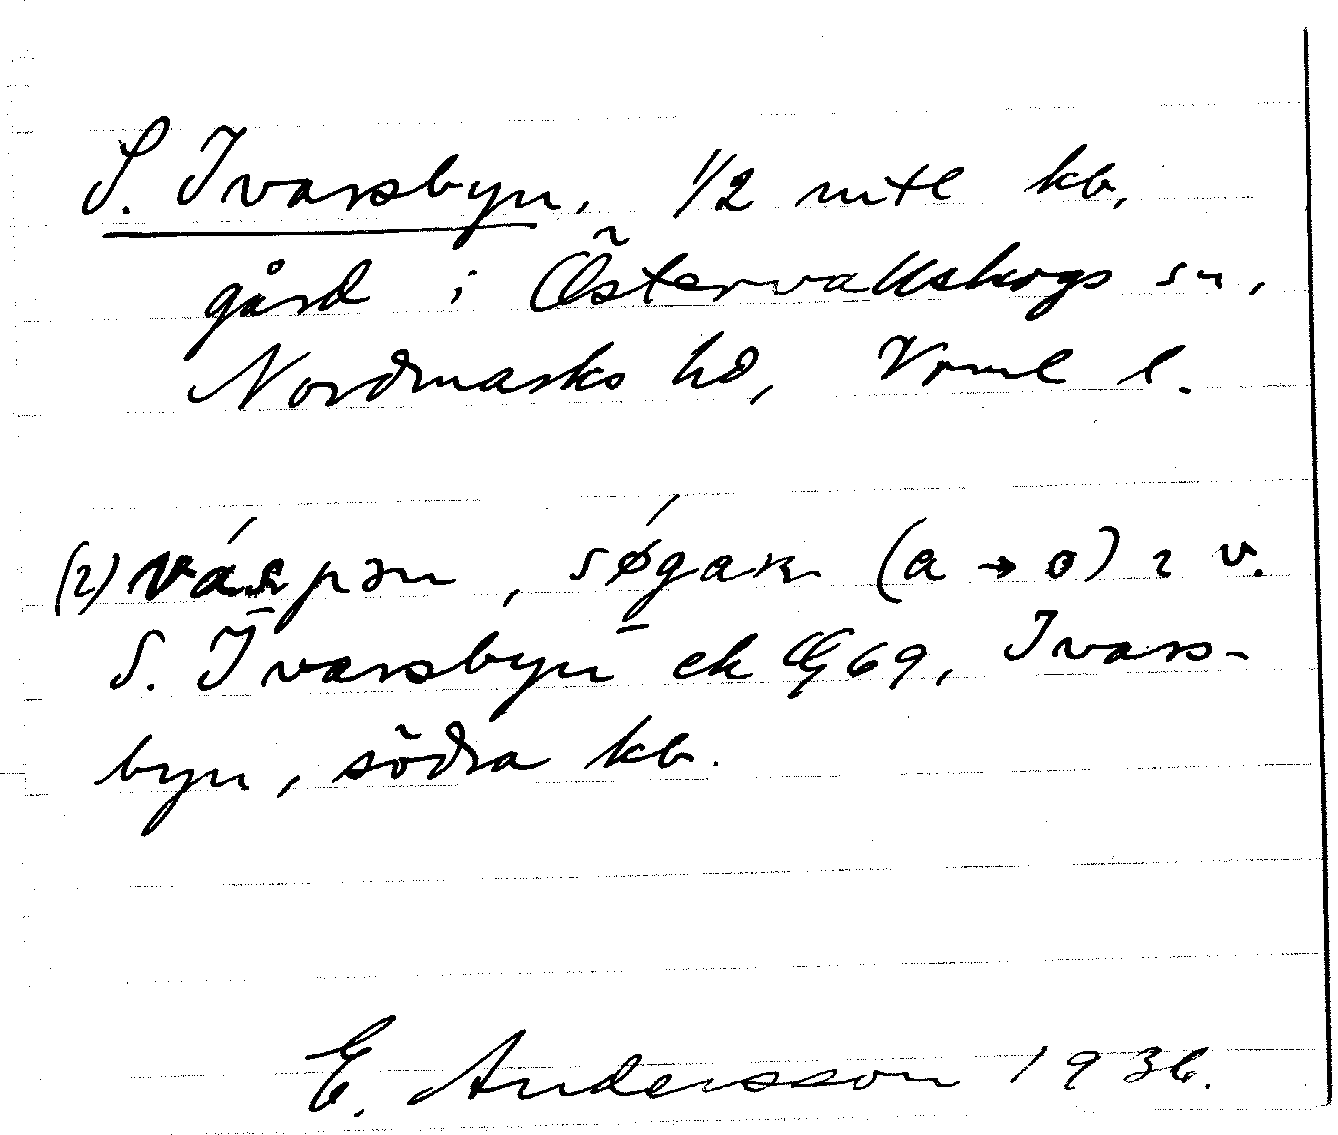 S. Ivarsbyn, 1/2 mtl kb,
gård i Östervallskogs sn,
Nordmarks hd, Vrml l.
S. Ivarsbyn ek Œ 69, Ivars-
byn, södra kb.
E. Andersson 1936.